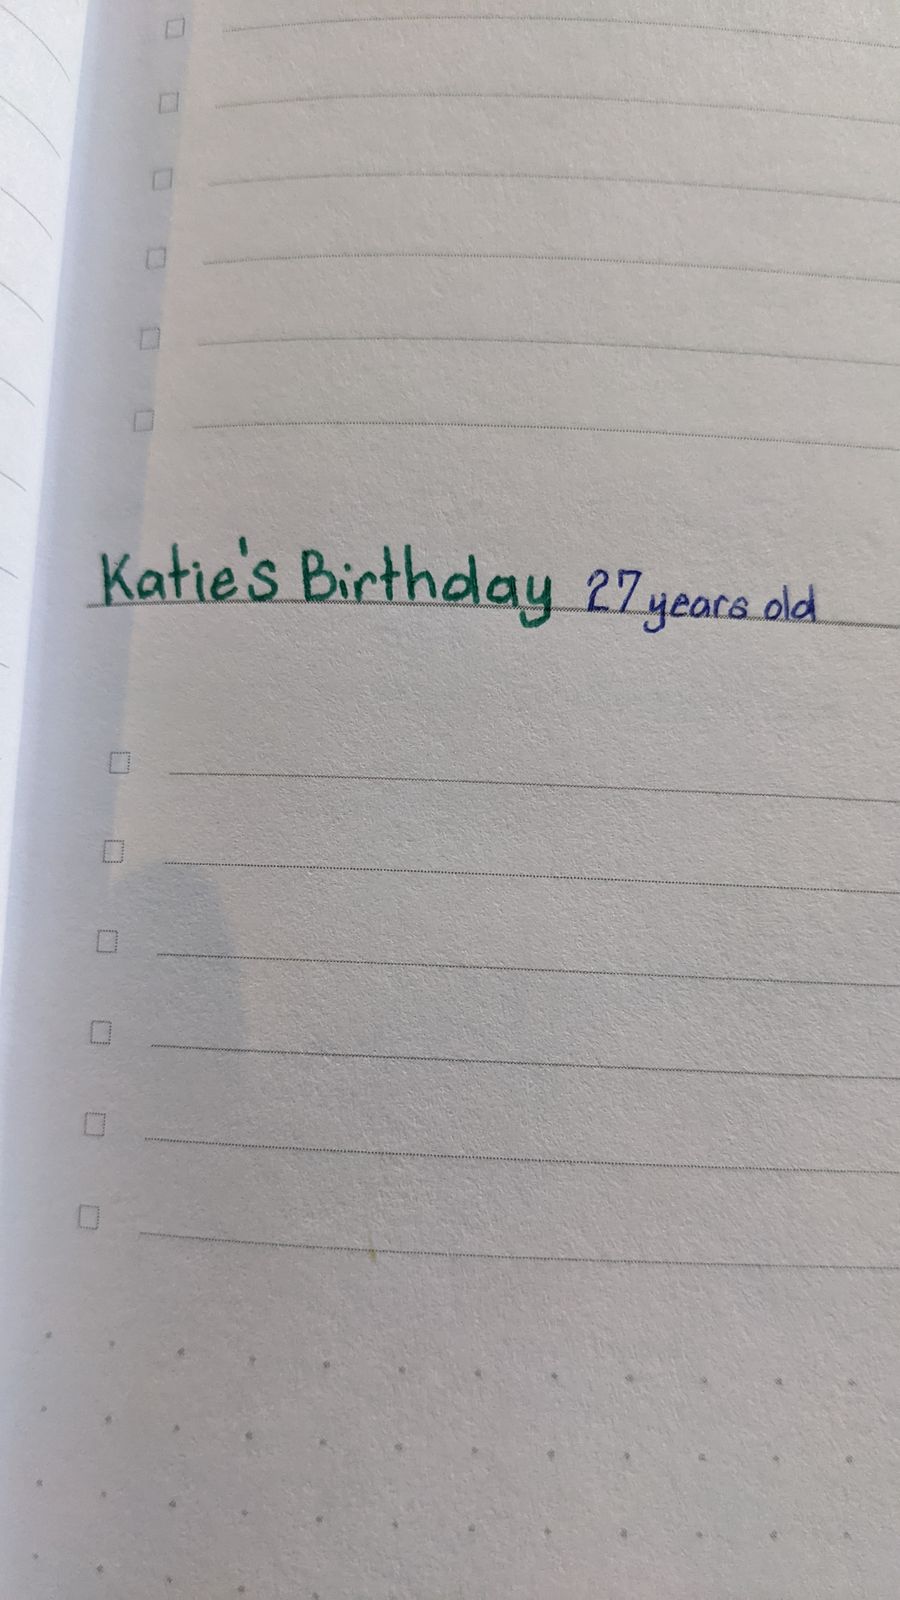 Katie's Birthday 27 years old